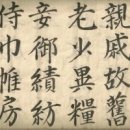 親戚故舊
老少異糧
妾御績紡
侍巾帷房